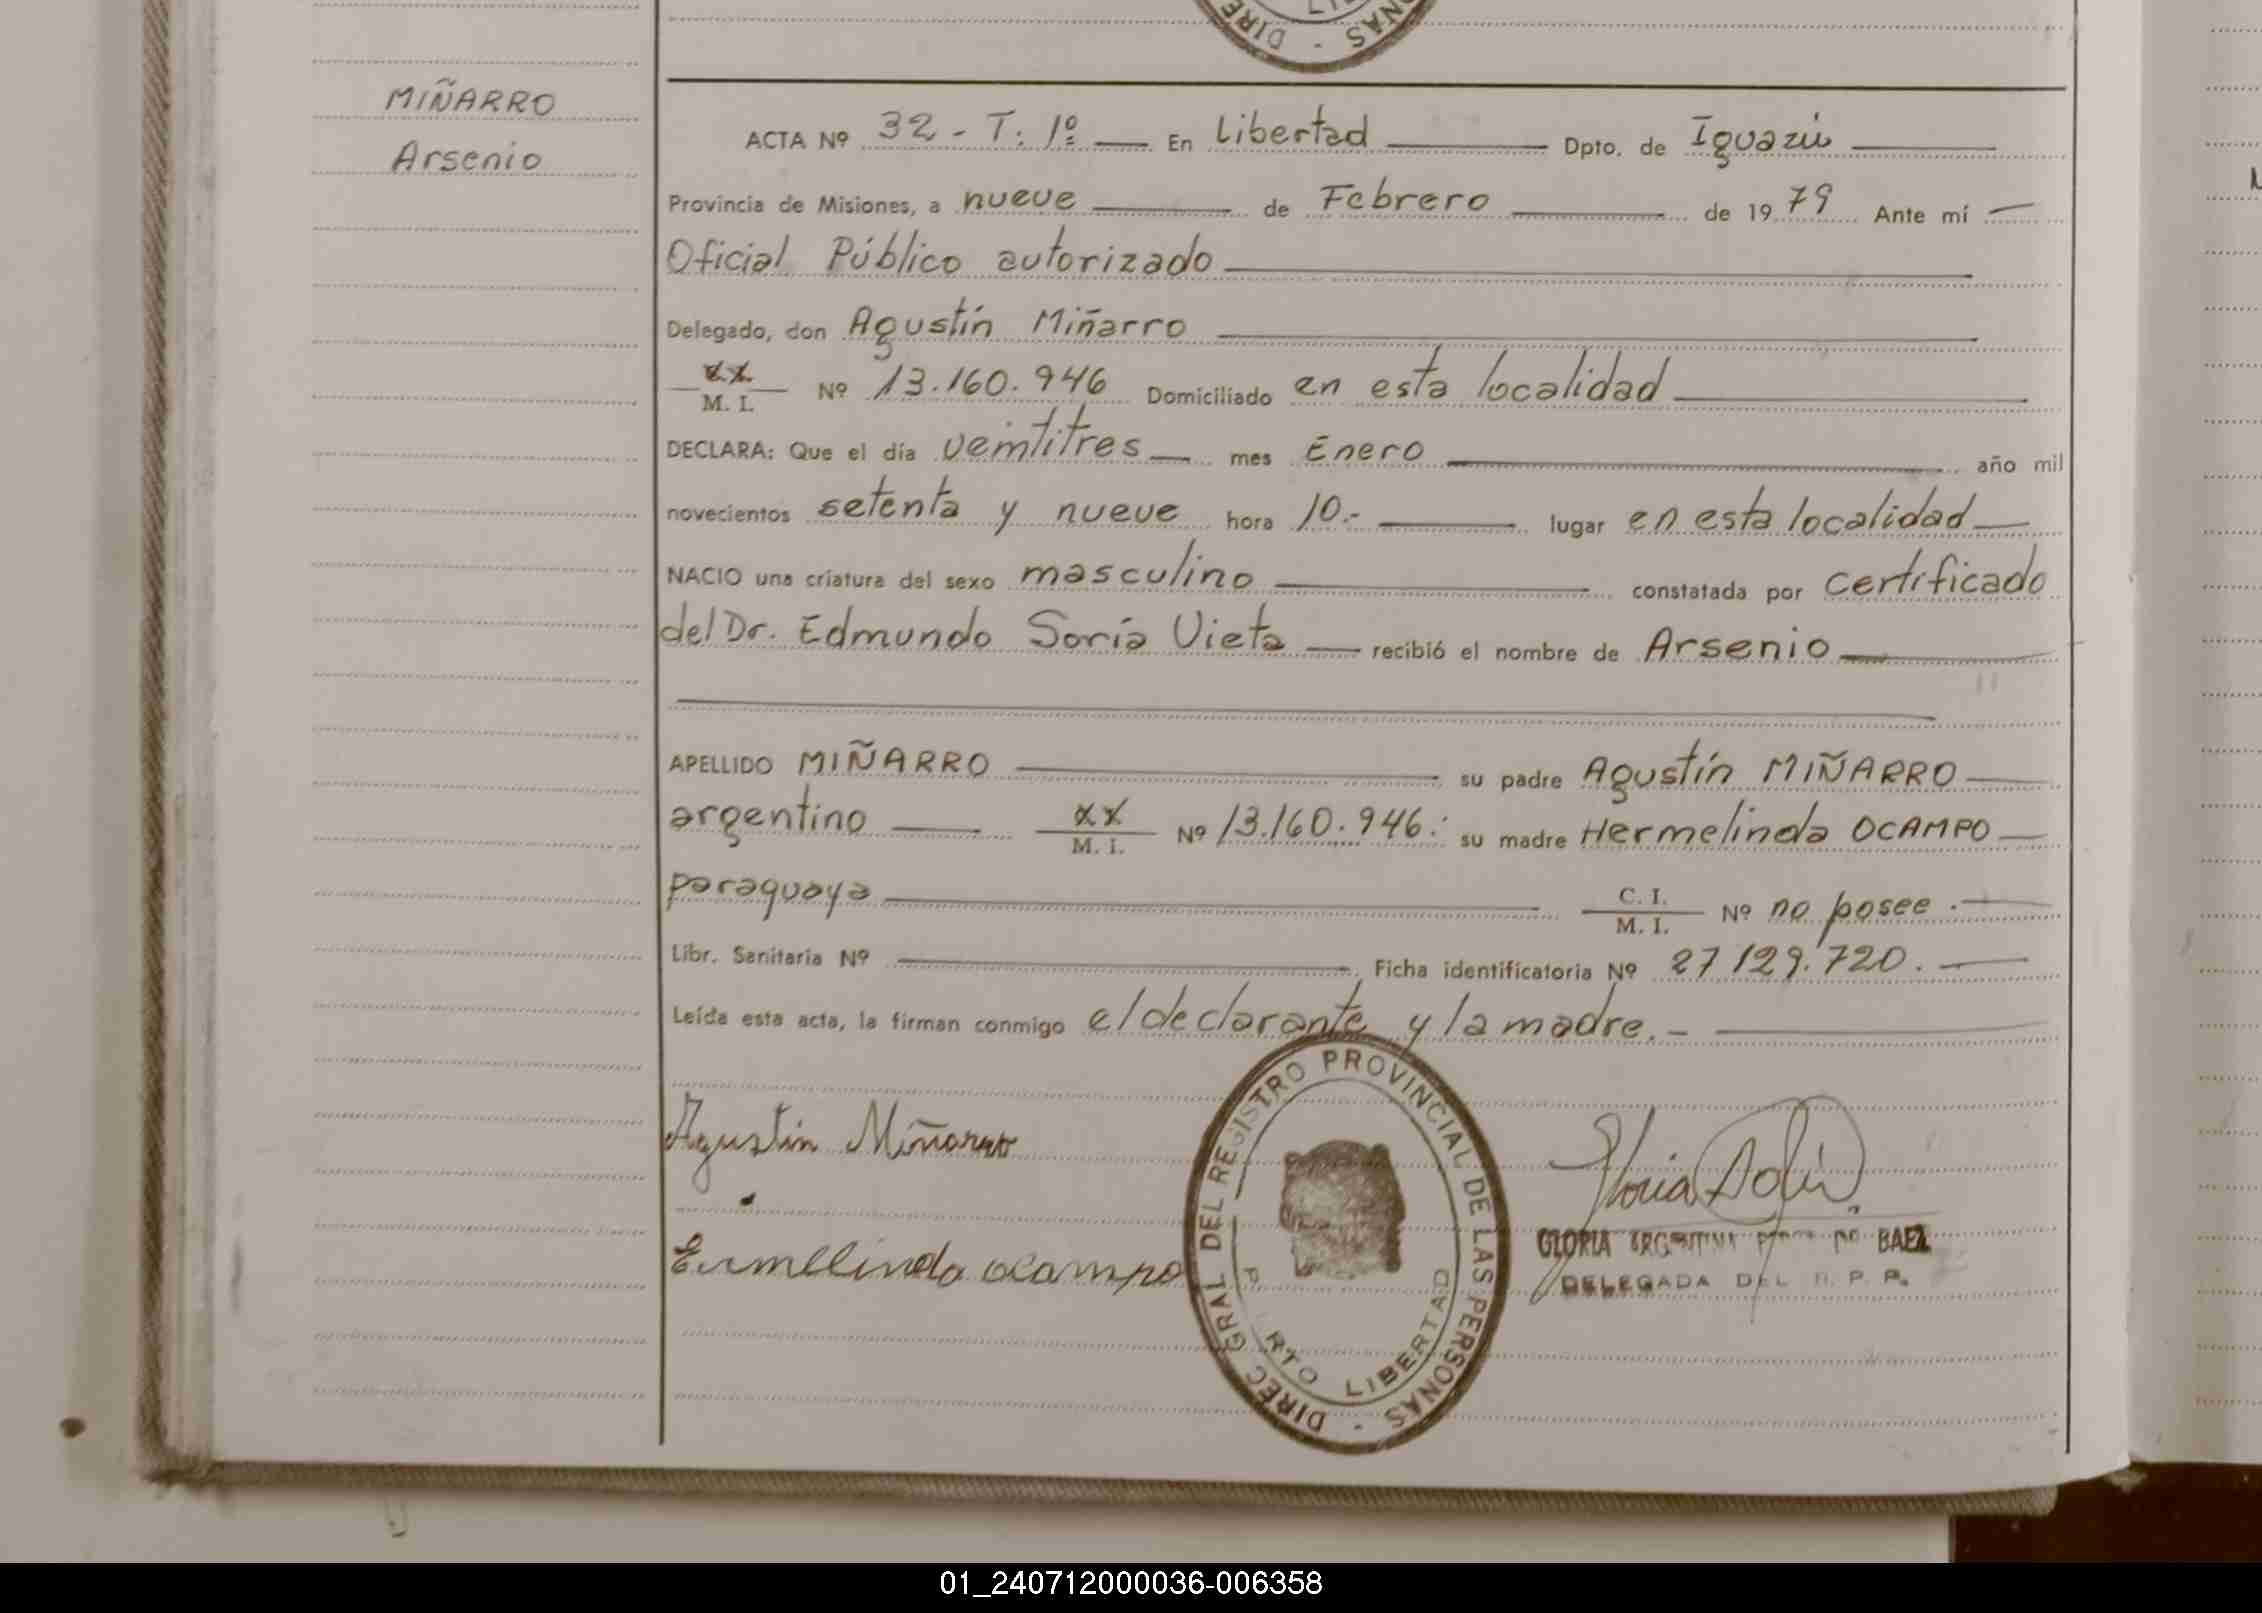 MIÑARRO
Arsenio
ACTA Nº 32 - T. 1º En Libertad Dpto. de Iguazú
Provincia de Misiones, a nueve de Febrero de 1979 Ante mí
Oficial Público autorizado
Delegado, don Agustín Miñarro
xx M. I. Nº 13.160.946 Domiciliado en esta localidad
DECLARA: Que el día veintitres mes Enero año mil
novecientos setenta y nueve hora 10.- lugar en esta localidad
NACIO una criatura del sexo masculino constatada por certificado
del Dr. Edmundo Soria Vieta recibió el nombre de Arsenio
APELLIDO MIÑARRO su padre Agustín MIÑARRO
argentino xx M. I. Nº 13.160.946. su madre Hermelinda OCAMPO
paraguaya C. I. M. I. Nº no posee.
Libr. Sanitaria Nº Ficha identificatoria Nº 27129.720.
Leída esta acta, la firman conmigo el declarante y la madre.-
Agustín Miñarro
Ermelinda ocampo
DIREC GRAL DEL REGISTRO PROVINCIAL DE LAS PERSONAS -
P RTO LIBERTAD
GLORIA ARGENTINA BAEZ
DELEGADA DEL R. P. P.
DIRE NAS -
LI
01_240712000036-006358